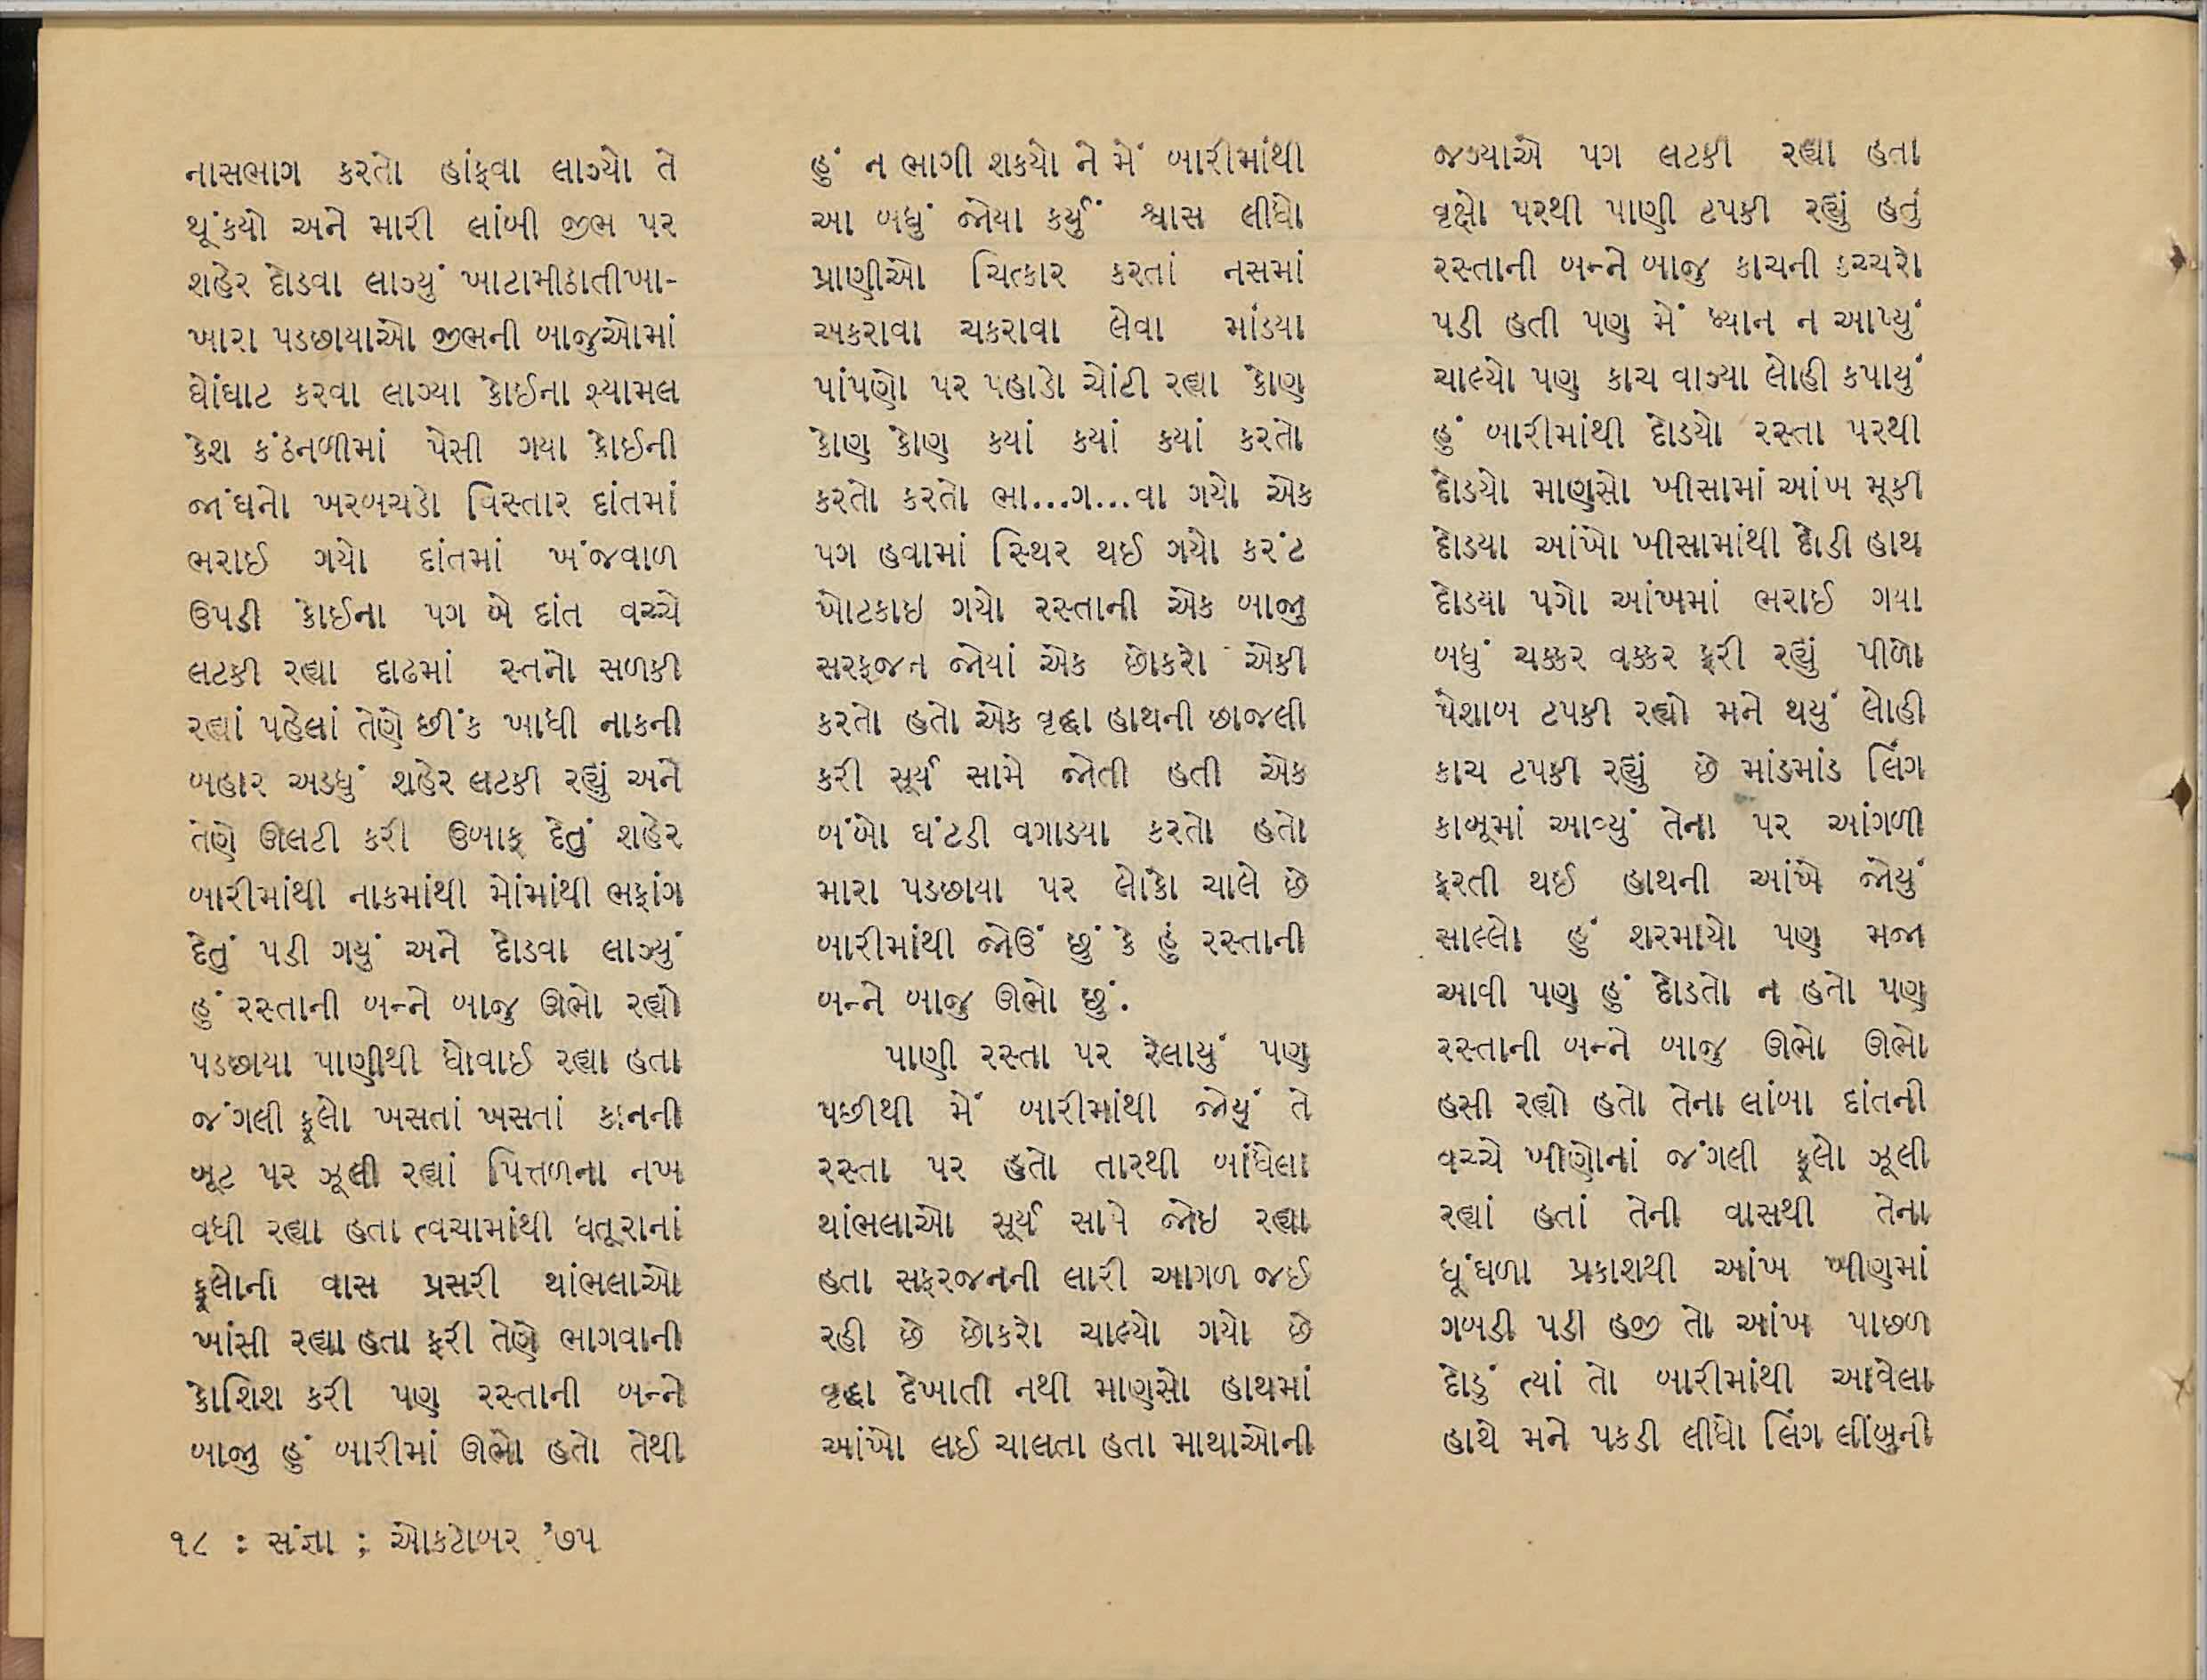 નાસભાગ કરતો હાંફવા લાગ્યો તે
થૂંકયો અને મારી લાંબી જીભ પર
શહેર દોડવા લાગ્યું ખાટામીઠાતીખા-
ખારા પડછાયાઓ જીભની બાજુઓમાં
ઘોંઘાટ કરવા લાગ્યા કોઈના શ્યામલ
કેશ કંઠનળીમાં પેસી ગયા કોઈની
જાંઘનો ખરબચડો વિસ્તાર દાંતમાં
ભરાઈ ગયો દાંતમાં ખંજવાળ
ઉપડી કોઈના પગ બે દાંત વચ્ચે
લટકી રહ્યા દાઢમાં સ્તનો સળકી
રહ્યાં પહેલાં તેણે છીંક ખાધી નાકની
બહાર અડધું શહેર લટકી રહ્યું અને
તેણે ઊલટી કરી ઉબાક દેતું શહેર
બારીમાંથી નાકમાંથી મોંમાંથી ભફાંગ
દેતું પડી ગયું અને દોડવા લાગ્યું
હું રસ્તાની બન્ને બાજુ ઊભો રહ્યો
પડછાયા પાણીથી ધોવાઈ રહ્યા હતા
જંગલી ફૂલો ખસતાં ખસતાં કાનની
બૂટ પર ઝૂલી રહ્યાં પિત્તળના નખ
વધી રહ્યા હતા ત્વચામાંથી ધતૂરાનાં
ફૂલોની વાસ પ્રસરી થાંભલાઓ
ખાંસી રહ્યા હતા ફરી તેણે ભાગવાની
કોશિશ કરી પણ રસ્તાની બન્ને
બાજુ હું બારીમાં ઊભો હતો તેથી
હું ન ભાગી શકયો ને મેં બારીમાંથી
આ બધું જોયા કર્યું શ્વાસ લીધો
પ્રાણીઓ ચિત્કાર કરતાં નસમાં
અકરાવા ચકરાવા લેવા માંડયા
પાંપણો પર પહાડો ચોંટી રહ્યા કોણ
કોણ કોણ કયાં કયાં કયાં કરતો
કરતો કરતો ભા...ગ...વા ગયો એક
પગ હવામાં સ્થિર થઈ ગયો કરંટ
ખોટકાઇ ગયો રસ્તાની એક બાજુ
સરફજન જોયાં એક છોકરો એકી
કરતો હતો એક વૃદ્ધા હાથની છાજલી
કરી સૂર્ય સામે જોતી હતી એક
બંબો ઘંટડી વગાડયા કરતો હતો
મારા પડછાયા પર લોકો ચાલે છે
બારીમાંથી જોઉં છું કે હું રસ્તાની
બન્ને બાજુ ઊભો છું.
પાણી રસ્તા પર રેલાયું પણ
પછીથી મેં બારીમાંથી જોયું તે
રસ્તા પર હતો તારથી બાંધેલા
થાંભલાઓ સૂર્ય સામે જોઇ રહ્યા
હતા સફરજનની લારી આગળ જઈ
રહી છે છોકરો ચાલ્યો ગયો છે
વૃદ્ધા દેખાતી નથી માણસો હાથમાં
આંખો લઈ ચાલતા હતા માથાઓની
જગ્યાએ પગ લટકી રહ્યા હતા
વૃક્ષો પરથી પાણી ટપકી રહ્યું હતું
રસ્તાની બન્ને બાજુ કાચની કચ્ચરો
પડી હતી પણ મેં ધ્યાન ન આપ્યું
ચાલ્યો પણ કાચ વાગ્યા લોહી કપાયું
હું બારીમાંથી દોડયો રસ્તા પરથી
દોડયો માણસો ખીસામાં આંખ મૂકી
દોડયા આંખો ખીસામાંથી દોડી હાથ
દોડયા પગો આંખમાં ભરાઈ ગયા
બધું ચક્કર વક્કર ફરી રહ્યું પીળો
પેશાબ ટપકી રહ્યો મને થયું લોહી
કાચ ટપકી રહ્યું છે માંડમાંડ લિંગ
કાબૂમાં આવ્યું તેના પર આંગળી
ફરતી થઈ હાથની આંખે જોયું
સાલ્લો હું શરમાયો પણ મજા
આવી પણ હું દોડતો ન હતો પણ
રસ્તાની બન્ને બાજુ ઊભો ઊભો
હસી રહ્યો હતો તેના લાંબા દાંતની
વચ્ચે ખીણોનાં જંગલી ફૂલો ઝૂલી
રહ્યાં હતાં તેની વાસથી તેના
ધૂંધળા પ્રકાશથી આંખ ખીણમાં
ગબડી પડી હજી તો આંખ પાછળ
દોડું ત્યાં તો બારીમાંથી આવેલા
હાથે મને પકડી લીધો લિંગ લીંબુની
૧૮ : સંજ્ઞા ; ઓકટોબર '૭૫